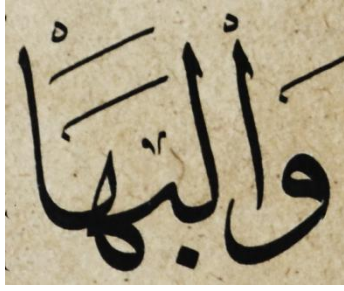 وَاْلبَهَاْ